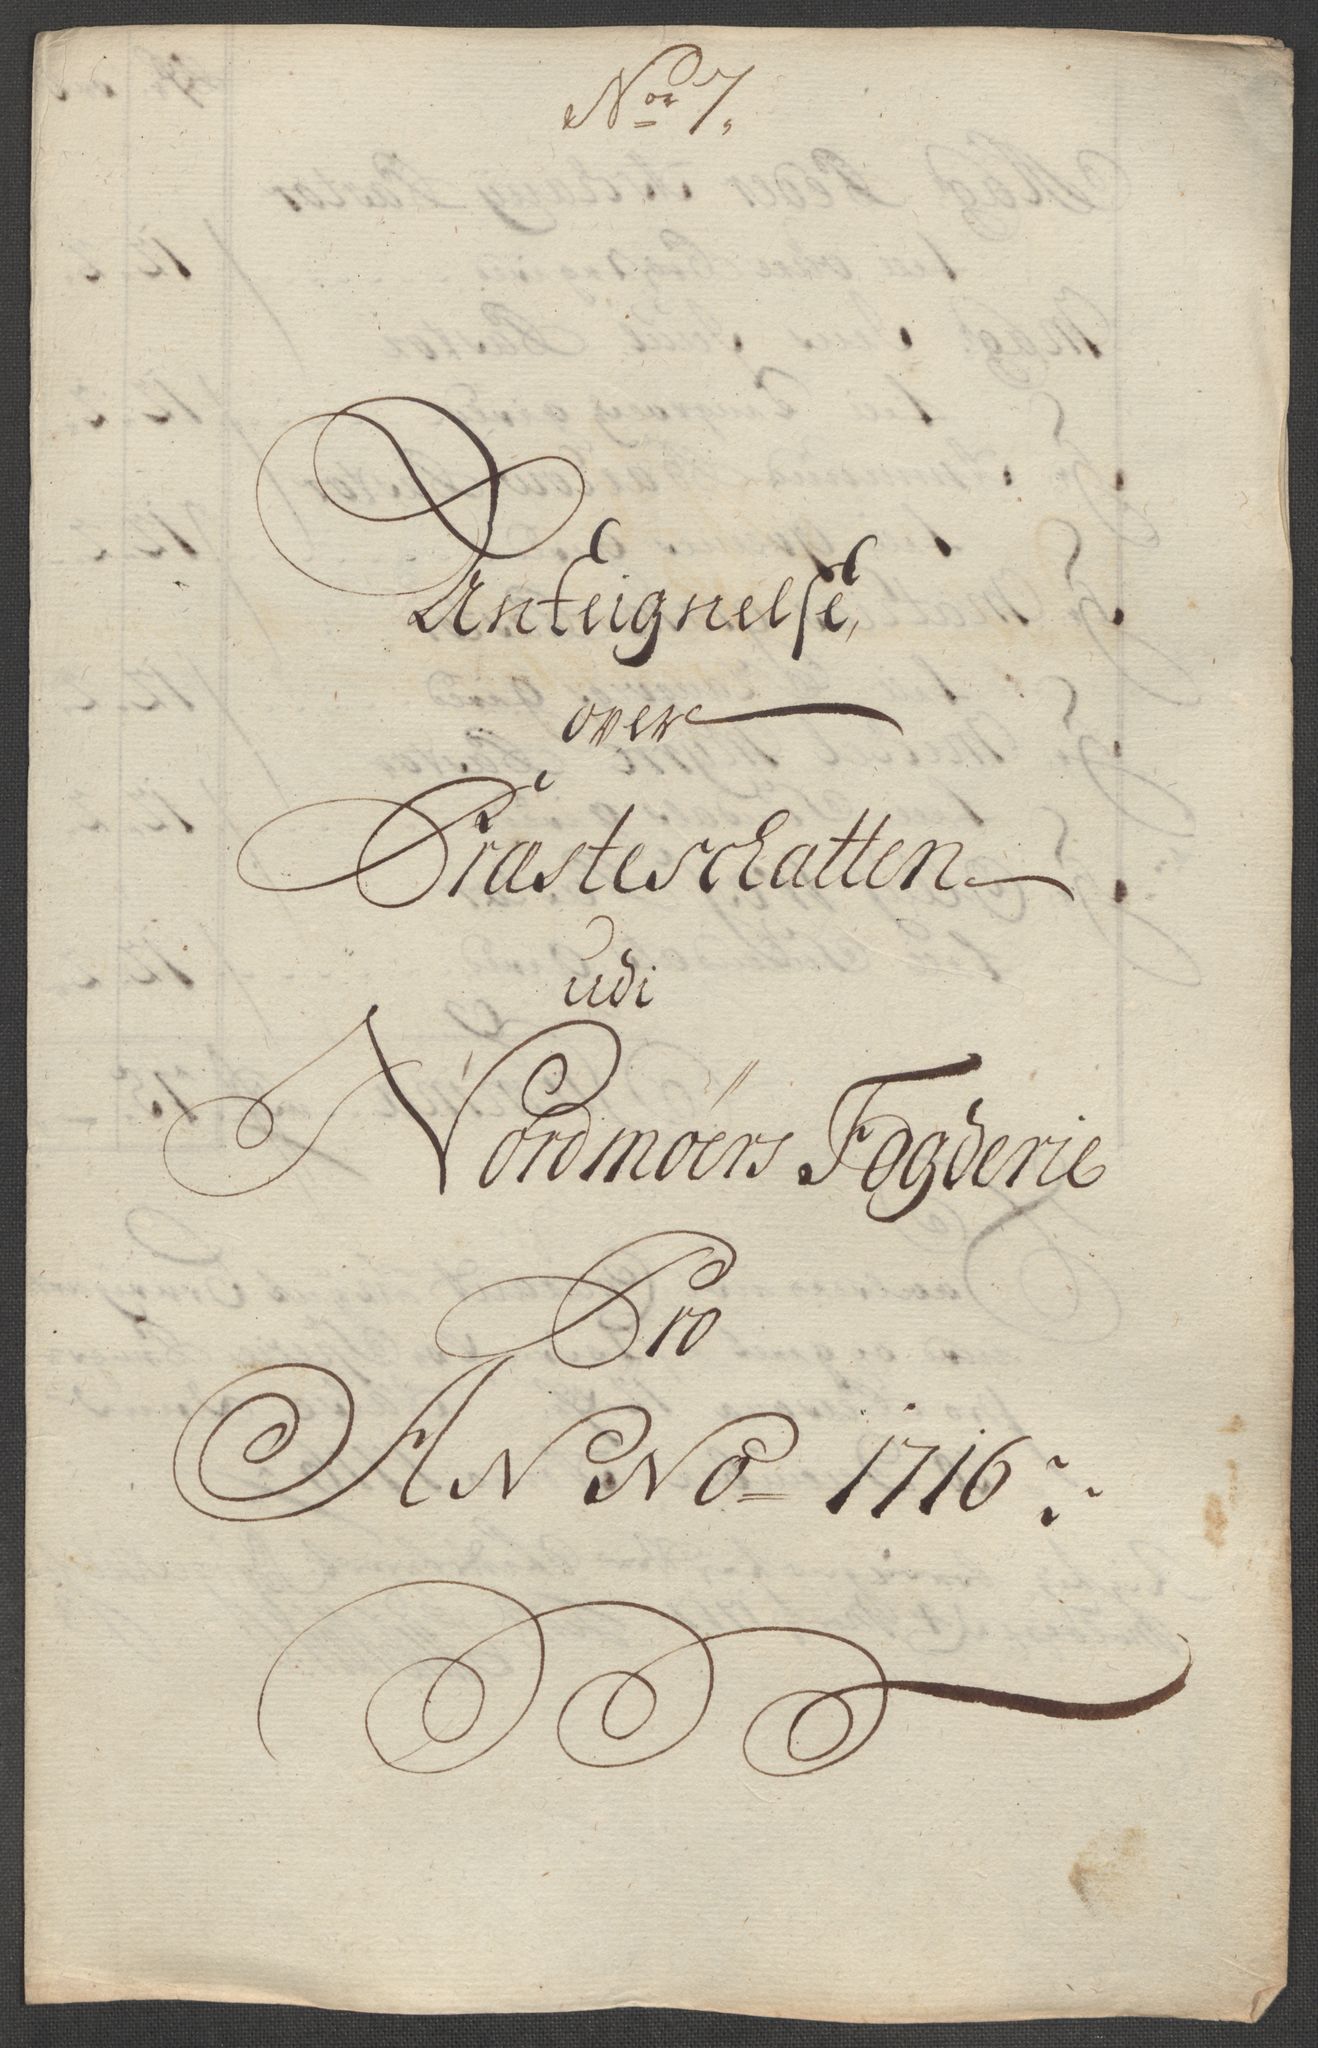 No 7,
Anteignelse,
over
Præsteschatten
udi
Nordmøers Fogderie
Pro
ANNO 1716: